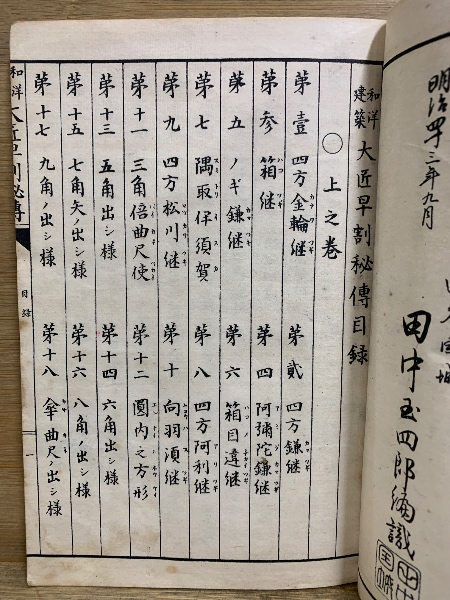 明治四十三年九月
田中玉四郎編識
和洋建築 大匠早割秘傳目録
○上之巻
第壹 四方金輪継 第貳 四方鎌継
第参 箱継 第四 阿彌陀鎌継
第五 ノギ鎌継 第六 箱目違継
第七 隅取伊須賀 第八 四方阿利継
第九 四方松川継 第十 向羽須継
第十一 三角倍曲尺使 第十二 圓内之方形
第十三 五角出シ様 第十四 六角出シ様
第十五 七角矢ノ出シ様 第十六 八角ノ出シ様
第十七 九角ノ出シ様 第十八 傘曲尺ノ出シ様
和洋 大匠早割秘傳 目録 一